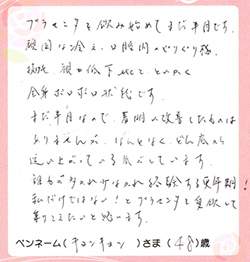 プラセンタを飲み始めてまだ半月です。
顔面な冷え、口腔内のピリピリ痛、
視力低下etc.といわく
全身ボロボロ状態です。
まだ半月なので、若干改善したものは
ありませんが、なんとなく、どん底から
這い上がっている感がしています。
誰もが多かれ少なかれ経験する更年期!
私だけではない!とプラセンタを愛飲して
乗りこえたいと思います。
ペンネーム(キョンキョン)さま(48)歳